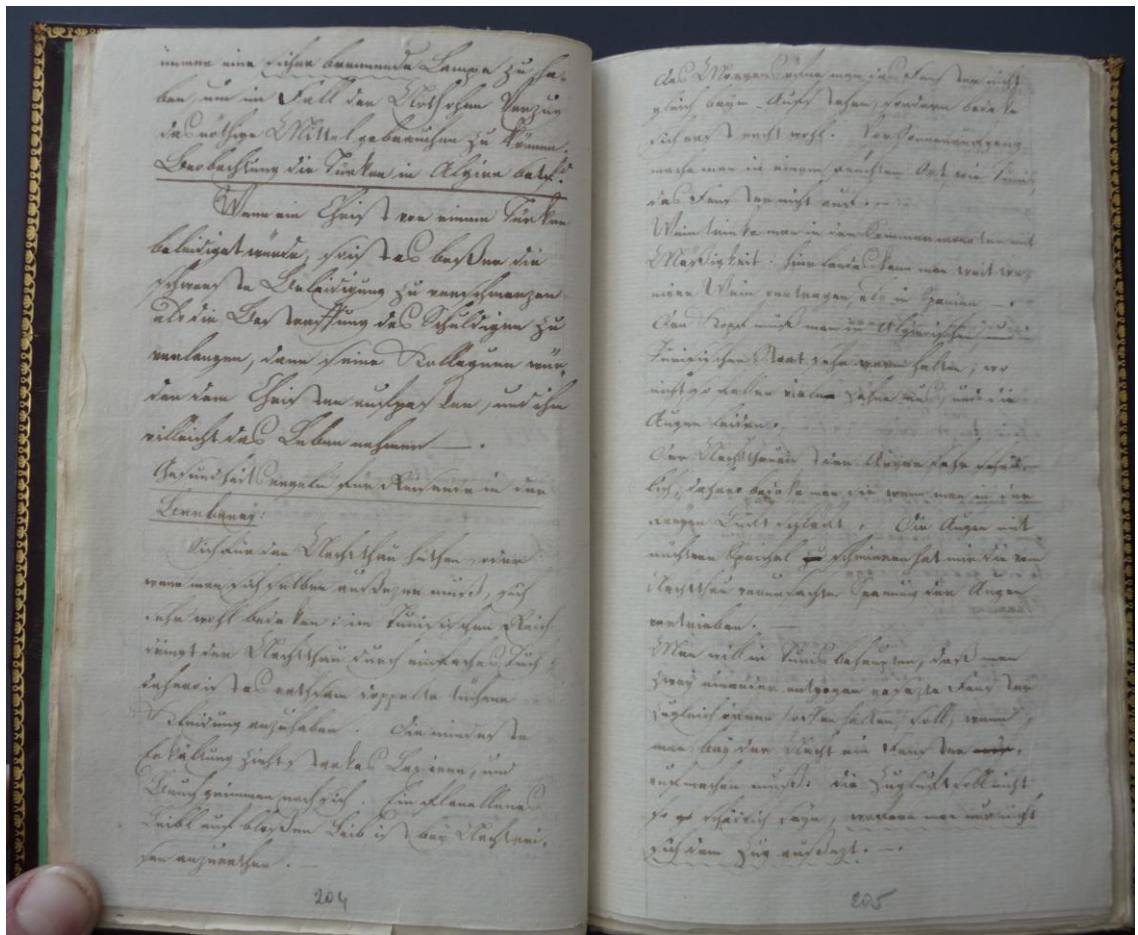 immer eine sicher brennende Lampe zu ha-
ben, um im Fall der Noth ohne Verzug
das nöthige Mittel gebrauchen zu können.
Beobachtung die Türken in Algier betrf:
Wenn ein Christ von einem Türken
beleidiget wurde, so ist es besser die
schwerste Beleidigung zu verschmerzen
als die Bestraffung des Schuldigen zu
verlangen, denn seine Kolleguen wür-
den dem Christen aufpassen, und ihm
villeicht das Leben nehmen —.
Gesundheitsregeln für Reisende in der
Barbarey:
Sich für den Nachtthau hüthen, oder
wenn man sich selben aussezen muß, sich
sehr wohl bedeken: im Tunisischen Reich
dringt der Nachtthau durch einfaches Tuch
daher ist es rathsam doppelte tüchene
Kleidung anzuhaben. Die mindeste
Erkältung zieht starkes Laxieren, und
Bauchgrimmen nach sich. Ein flanellenes
Leibl auf bloßen Leib ist bey Nachtrei-
sen anzurathen.
204
des Morgens öffne man das Fenster nicht
gleich beym Aufstehen, sondern bedeke
sich erst recht wohl. Vor Sonnenaufgang
mache man in einem feuchten Ort, wie Tunis,
das Fenster nicht auf.—
Wein trinke man in den Sommermonaten mit
Mäßigkeit: hier Landes kann man weit we-
niger Wein vertragen, als in Spanien —.
Den Kopf muß man im Algierischen und
Tunisischen Staat sehr warm halten; wo
nicht so fallen viele Zähne aus, und die
Augen leiden.
Der Nachtthau ist den Augen sehr schäd-
lich, daher bedeke man sie wenn man in der
freyen Luft schläft. Die Augen mit
nüchtern Speichel schmieren hat mir die vom
Nachtthau verursachte Spannung der Augen
vertrieben.—
Man will in Tunis behaupten, daß man
zwey einander entgegen gesezte Fenster
zugleich offen halten soll, wenn
man bey der Nacht ein Fenster
aufmachen muß: die Zugluft soll nicht
so schädlich seyn, wenn man nur nicht
sich dem Zug aussezt.—.
205